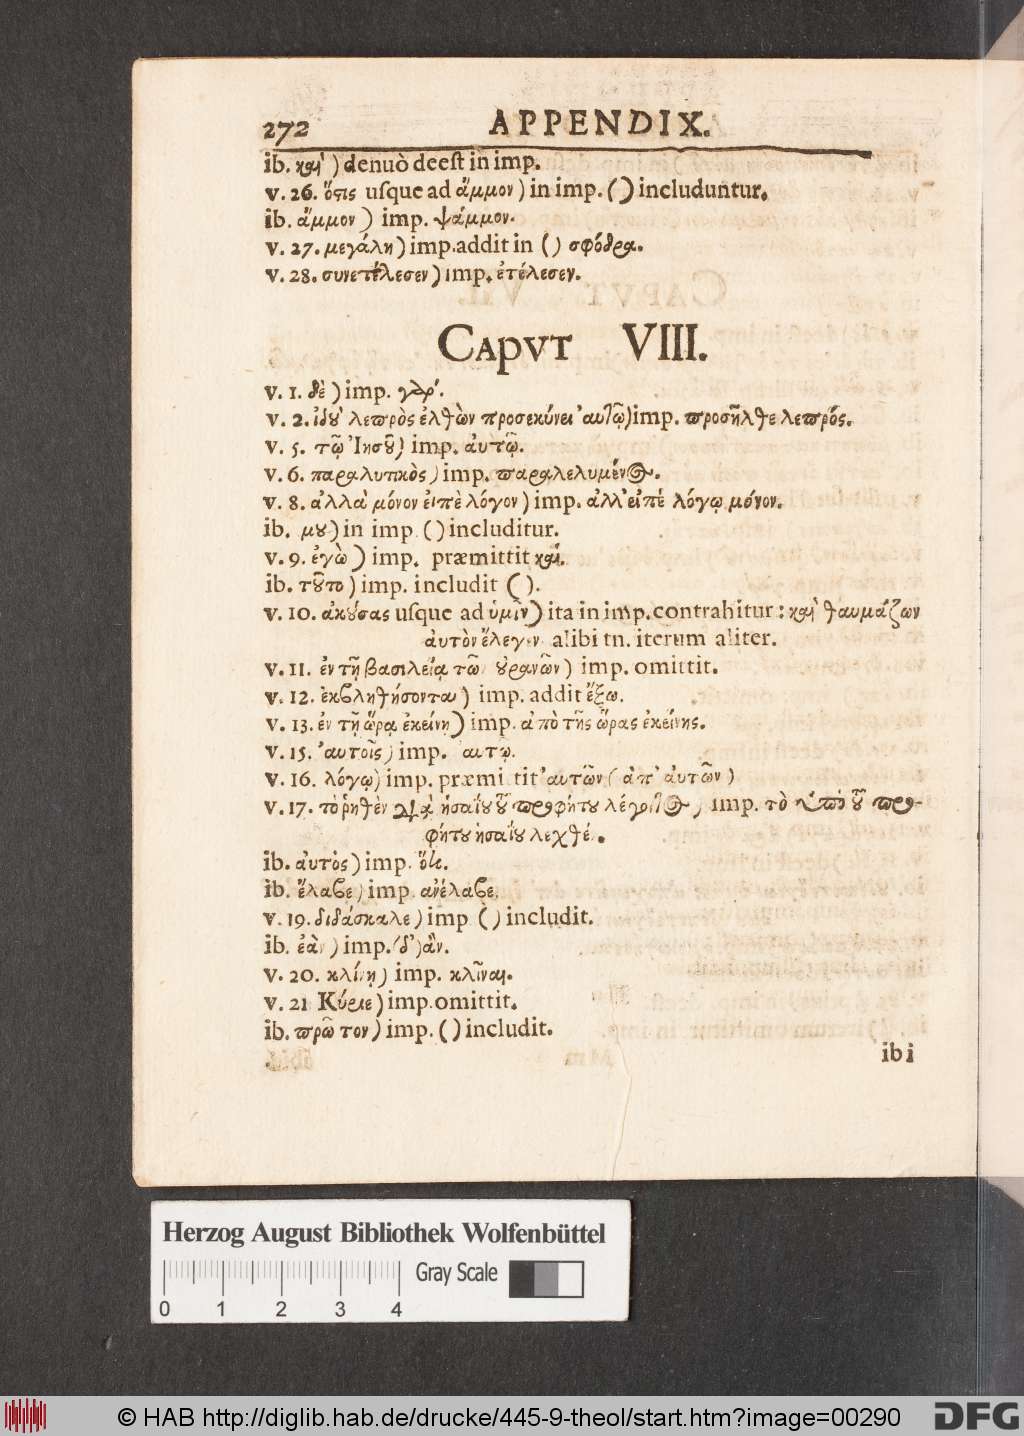 272 APPENDIX.
ib. καὶ) denuò deest in imp.
v. 26. ὅστις usque ad ἄμμον) in imp. () includuntur.
ib. ἄμμον) imp. ψάμμον.
v. 27. μεγάλη) imp. addit in () σφόδρα.
v. 28. συνετέλεσεν) imp. ἐτέλεσεν.
CAPVT VIII.
v. 1. δὲ) imp. γὰρ.
v. 2. ἰδοὺ λεπρὸς ἐλθὼν προσεκύνει αὐτῷ) imp. προσῆλθε λεπρός.
v. 5. τῷ Ἰησοῦ) imp. αὐτῷ.
v. 6. παραλυτικὸς) imp. παραλελυμένος.
v. 8. ἀλλὰ μόνον εἰπὲ λόγον) imp. ἀλλ' εἰπὲ λόγῳ μόνον.
ib. μου) in imp. () includitur.
v. 9. ἐγὼ) imp. præmittit καὶ.
ib. τοῦτο) imp. includit ().
v. 10. ἀκούσας usque ad ὑμῖν) ita in imp. contrahitur: καὶ θαυμάζων
αὐτὸν ἔλεγεν alibi tn. iterum aliter.
v. 11. ἐν τῇ βασιλείᾳ τῶν οὐρανῶν) imp. omittit.
v. 12. ἐκβληθήσονται) imp. addit ἔξω.
v. 13. ἐν τῇ ὥρᾳ ἐκείνῃ) imp. ἀπὸ τῆς ὥρας ἐκείνης.
v. 15. αὐτοῖς) imp. αυτῳ.
v. 16. λόγῳ) imp. præmittit αὐτῶν (ἀπ' αὐτῶν)
v. 17. τὸ ῥηθὲν διὰ ἡσαΐου τοῦ προφήτου λέγοντος) imp. τὸ ὑπὸ τοῦ προ-
φήτου ἡσαΐου λεχθέν.
ib. αὐτὸς) imp. ὅς.
ib. ἔλαβε) imp. ἀνέλαβε.
v. 19. διδάσκαλε) imp () includit.
ib. ἐὰν) imp. (δ') ἂν.
v. 20. κλίνῃ) imp. κλῖναι.
v. 21 Κύριε) imp. omittit.
ib. πρῶτον) imp. () includit.
ibi
Herzog August Bibliothek Wolfenbüttel
Gray Scale
0 1 2 3 4
© HAB http://diglib.hab.de/drucke/445-9-theol/start.htm?image=00290
DFG